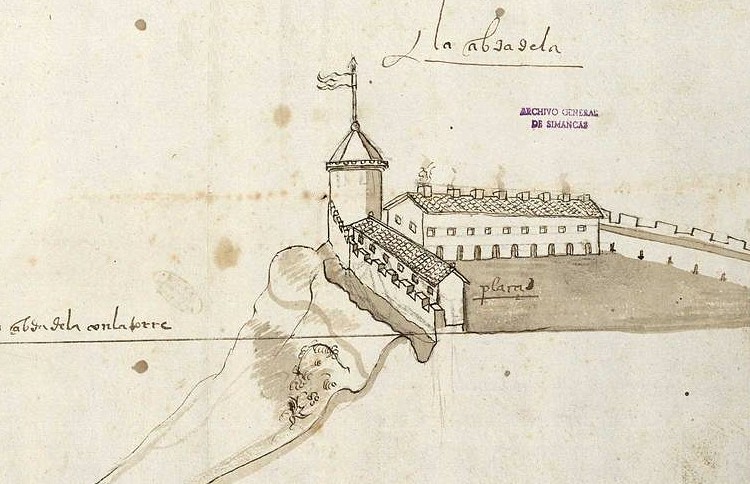 la cibdadela
ARCHIVO GENERAL
DE SIMANCAS
plaça
cibdadela con la torre